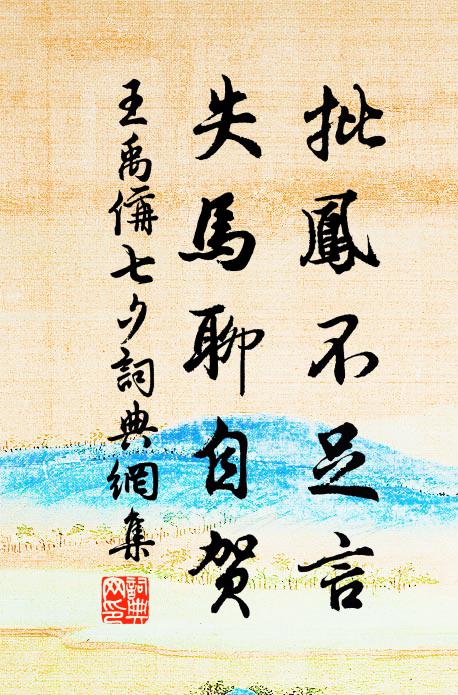 批鳳不足言
失馬聊自賀
王禹偁七夕詞典網集
詞典网印